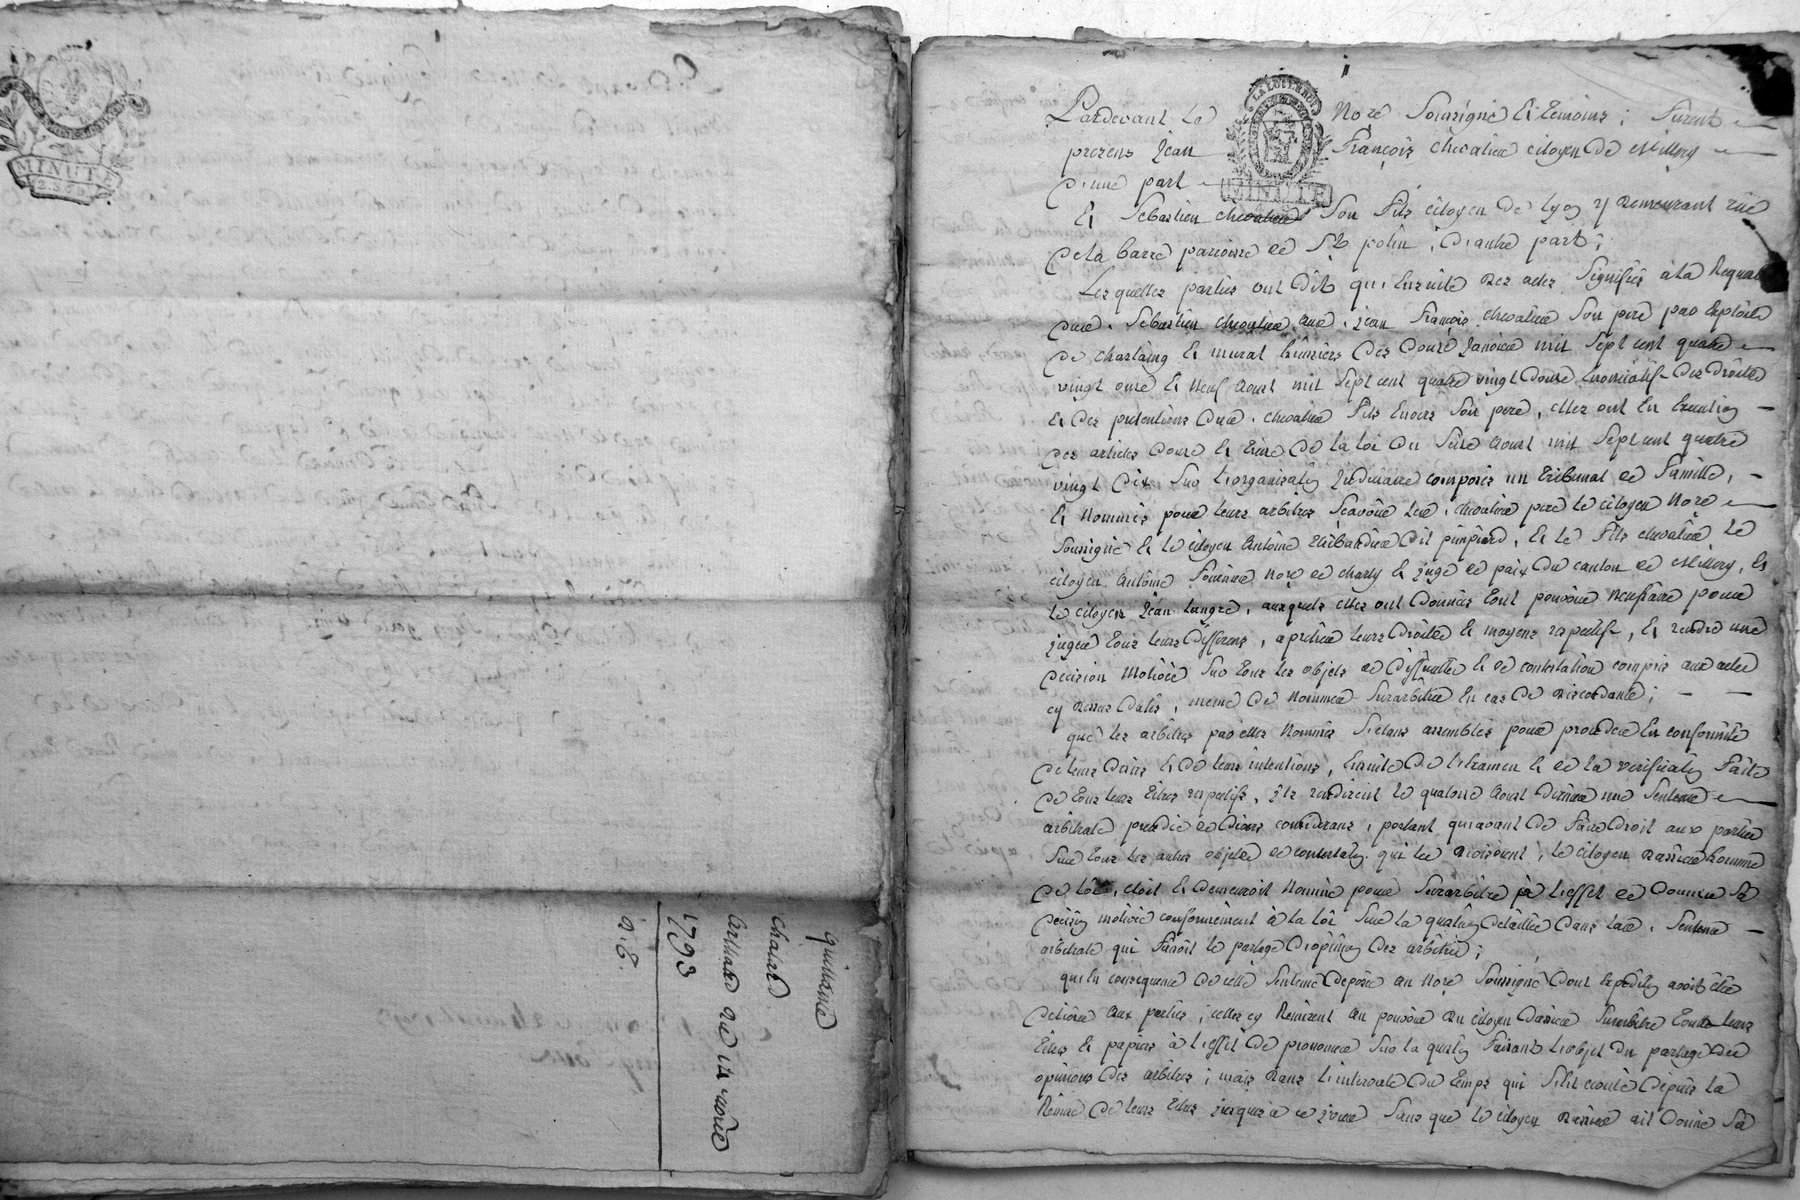 MINUTE
quittance
chalard
1793
LA LOI LE ROI
MINUTE
Pardevant Le Nore Soussigné Et temoins ; furent
presens Jean François chevalier citoyen de Millery
d'une part
Et Sebastien chevalier Son fils citoyen de Lyon y demeurant rüe
de la barre paroisse de St polin ; d'autre part ;
Lesquelles parties ont dit qu'ensuite des actes Signifiés à la Requete
dud. Sebastien chevalier aud. jean François chevalier Son pere par Exploits
de charlaing Et murat huissiers des douze Janvier mil Sept cent quatre
vingt onze Et neuf Aoust mil Sept cent quatre vingt douze Enonciatifs des droits
Et des pretentions dud. chevalier fils Envers Son pere, elles ont En Execution
des articles douze Et treize de la Loi du Seize Aoust mil Sept cent quatre
vingt dix Sur L'organisation Judiciaire composé un tribunal de famille,
Et Nommés pour leurs arbitres Scavoir Led. chevalier pere le citoyen Nore
Soussigné Et le citoyen Antoine dit, Et le fils chevalier le
citoyen Antoine Nore de charly Et juge de paix du canton de Millery, Et
le citoyen Jean Langre, auxquels elles ont données tout pouvoir necessaire pour
juger tous leurs differens, aprecier leurs droits Et moyens respectifs, Et rendre une
décision Motivée Sur tous les objets de difficultés Et de contestation compris aux actes
cy dessus datés, meme de Nommer Surarbitre En cas de discordance ;
que les arbitres par elles Nommés S'etans assemblés pour proceder En conformité
de leurs desirs Et de leurs intentions, Ensuite de L'Examen Et de la verification faite
de tous leurs titres respectifs, ils rendirent le quatorze Aoust dernier une Sentence
arbitrale precedée de divers considerans, portant qu'avant de faire droit aux parties
Sur tous les autres objets de contestation qui les divisoient, le citoyen homme
de loi, etoit Et demeuroit Nommé pour Surarbitre à L'effet de donner Sa
décision motivée conformément à la loi Sur la question detaillée dans lad. Sentence
arbitrale qui faisoit le partage d'opinion des arbitres ;
qu'en consequence de cette Sentence deposée au Nore Soussigné dont Expedition avoit été
delivrée aux parties, celles cy Remirent au pouvoir du citoyen Surarbitre tous leurs
titres Et papiers à L'effet de prononcer Sur la question faisant L'objet du partage des
opinions des arbitres ; mais dans L'intervale du temps qui S'est ecoulé depuis la
Remise de leurs titres jusques à ce jour Sans que le citoyen ait donné Sa